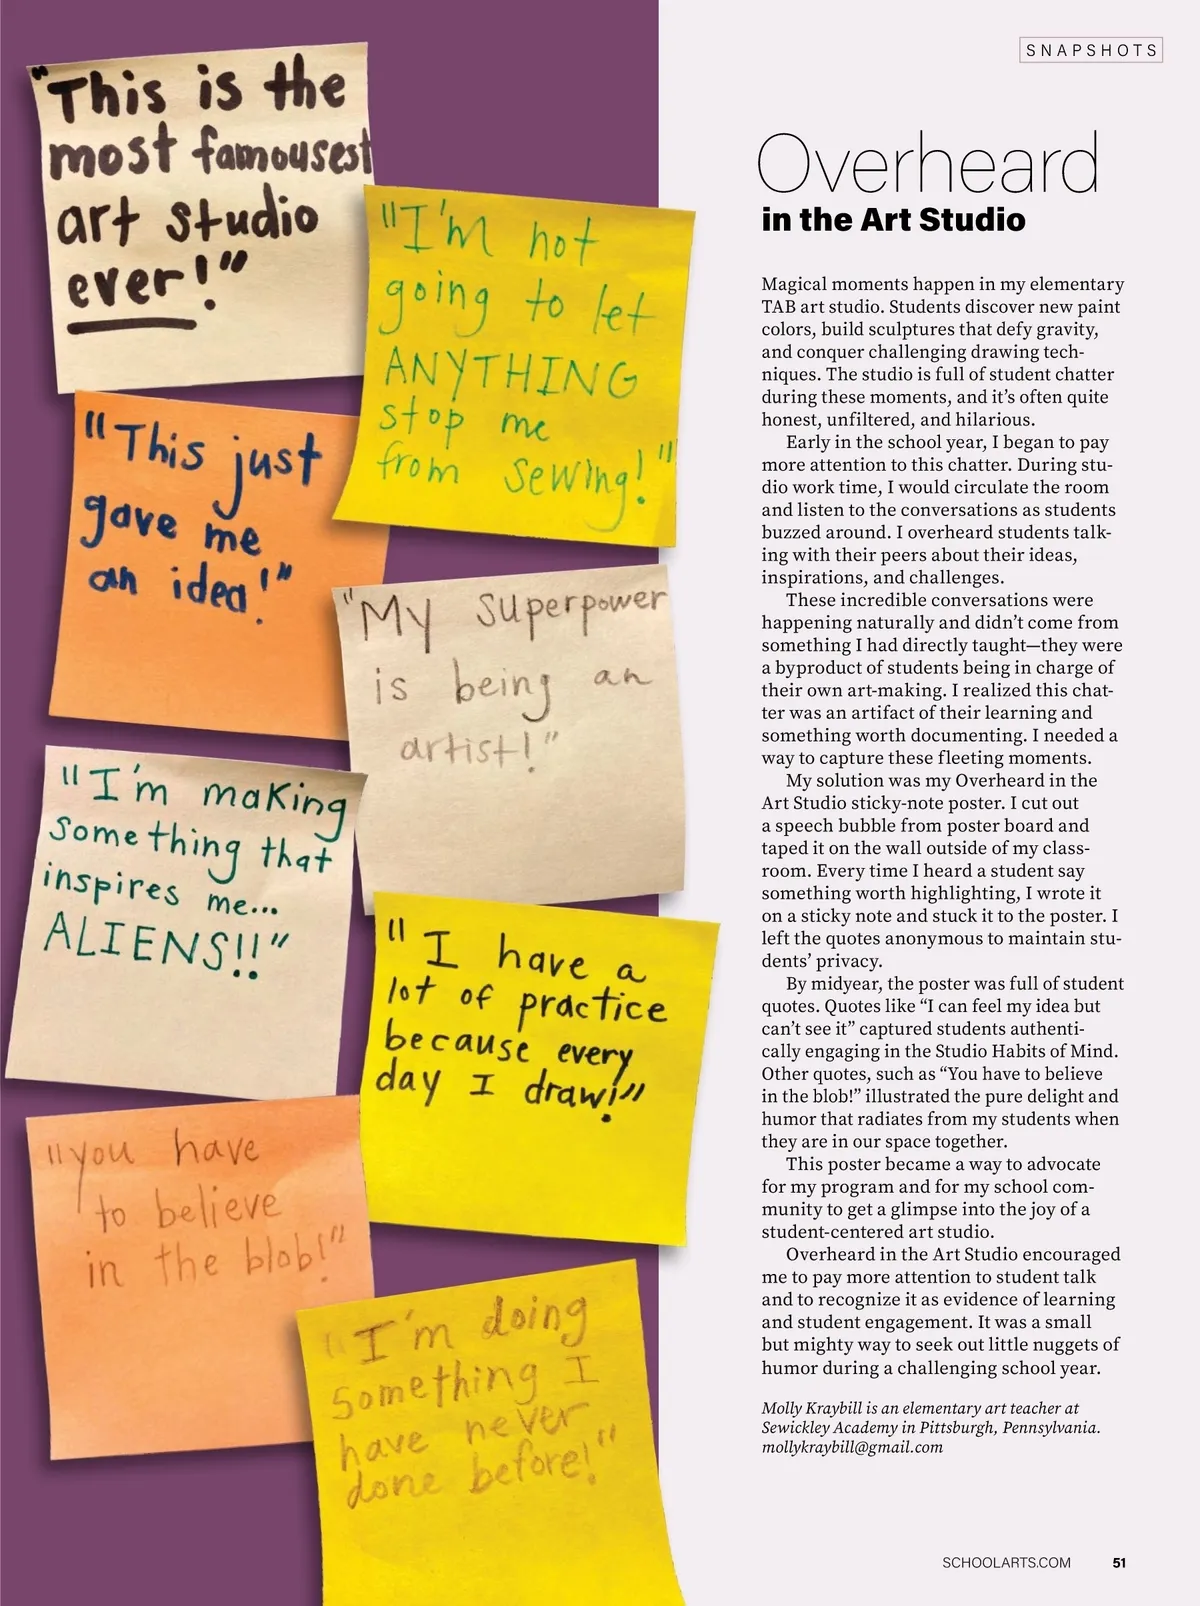 "This is the
most famousest
art studio
ever!"
"I'm not
going to let
ANYTHING
stop me
from sewing!"
"This just
gave me
an idea!"
"My superpower
is being an
artist!"
"I'm making
something that
inspires me...
ALIENS!!"
"I have a
lot of practice
because every
day I draw!"
"you have
to believe
in the blob!"
"I'm doing
something I
have never
done before!"
SNAPSHOTS
Overheard
in the Art Studio
Magical moments happen in my elementary
TAB art studio. Students discover new paint
colors, build sculptures that defy gravity,
and conquer challenging drawing tech-
niques. The studio is full of student chatter
during these moments, and it's often quite
honest, unfiltered, and hilarious.
Early in the school year, I began to pay
more attention to this chatter. During stu-
dio work time, I would circulate the room
and listen to the conversations as students
buzzed around. I overheard students talk-
ing with their peers about their ideas,
inspirations, and challenges.
These incredible conversations were
happening naturally and didn't come from
something I had directly taught—they were
a byproduct of students being in charge of
their own art-making. I realized this chat-
ter was an artifact of their learning and
something worth documenting. I needed a
way to capture these fleeting moments.
My solution was my Overheard in the
Art Studio sticky-note poster. I cut out
a speech bubble from poster board and
taped it on the wall outside of my class-
room. Every time I heard a student say
something worth highlighting, I wrote it
on a sticky note and stuck it to the poster. I
left the quotes anonymous to maintain stu-
dents' privacy.
By midyear, the poster was full of student
quotes. Quotes like "I can feel my idea but
can't see it" captured students authenti-
cally engaging in the Studio Habits of Mind.
Other quotes, such as "You have to believe
in the blob!" illustrated the pure delight and
humor that radiates from my students when
they are in our space together.
This poster became a way to advocate
for my program and for my school com-
munity to get a glimpse into the joy of a
student-centered art studio.
Overheard in the Art Studio encouraged
me to pay more attention to student talk
and to recognize it as evidence of learning
and student engagement. It was a small
but mighty way to seek out little nuggets of
humor during a challenging school year.
Molly Kraybill is an elementary art teacher at
Sewickley Academy in Pittsburgh, Pennsylvania.
mollykraybill@gmail.com
SCHOOLARTS.COM 51